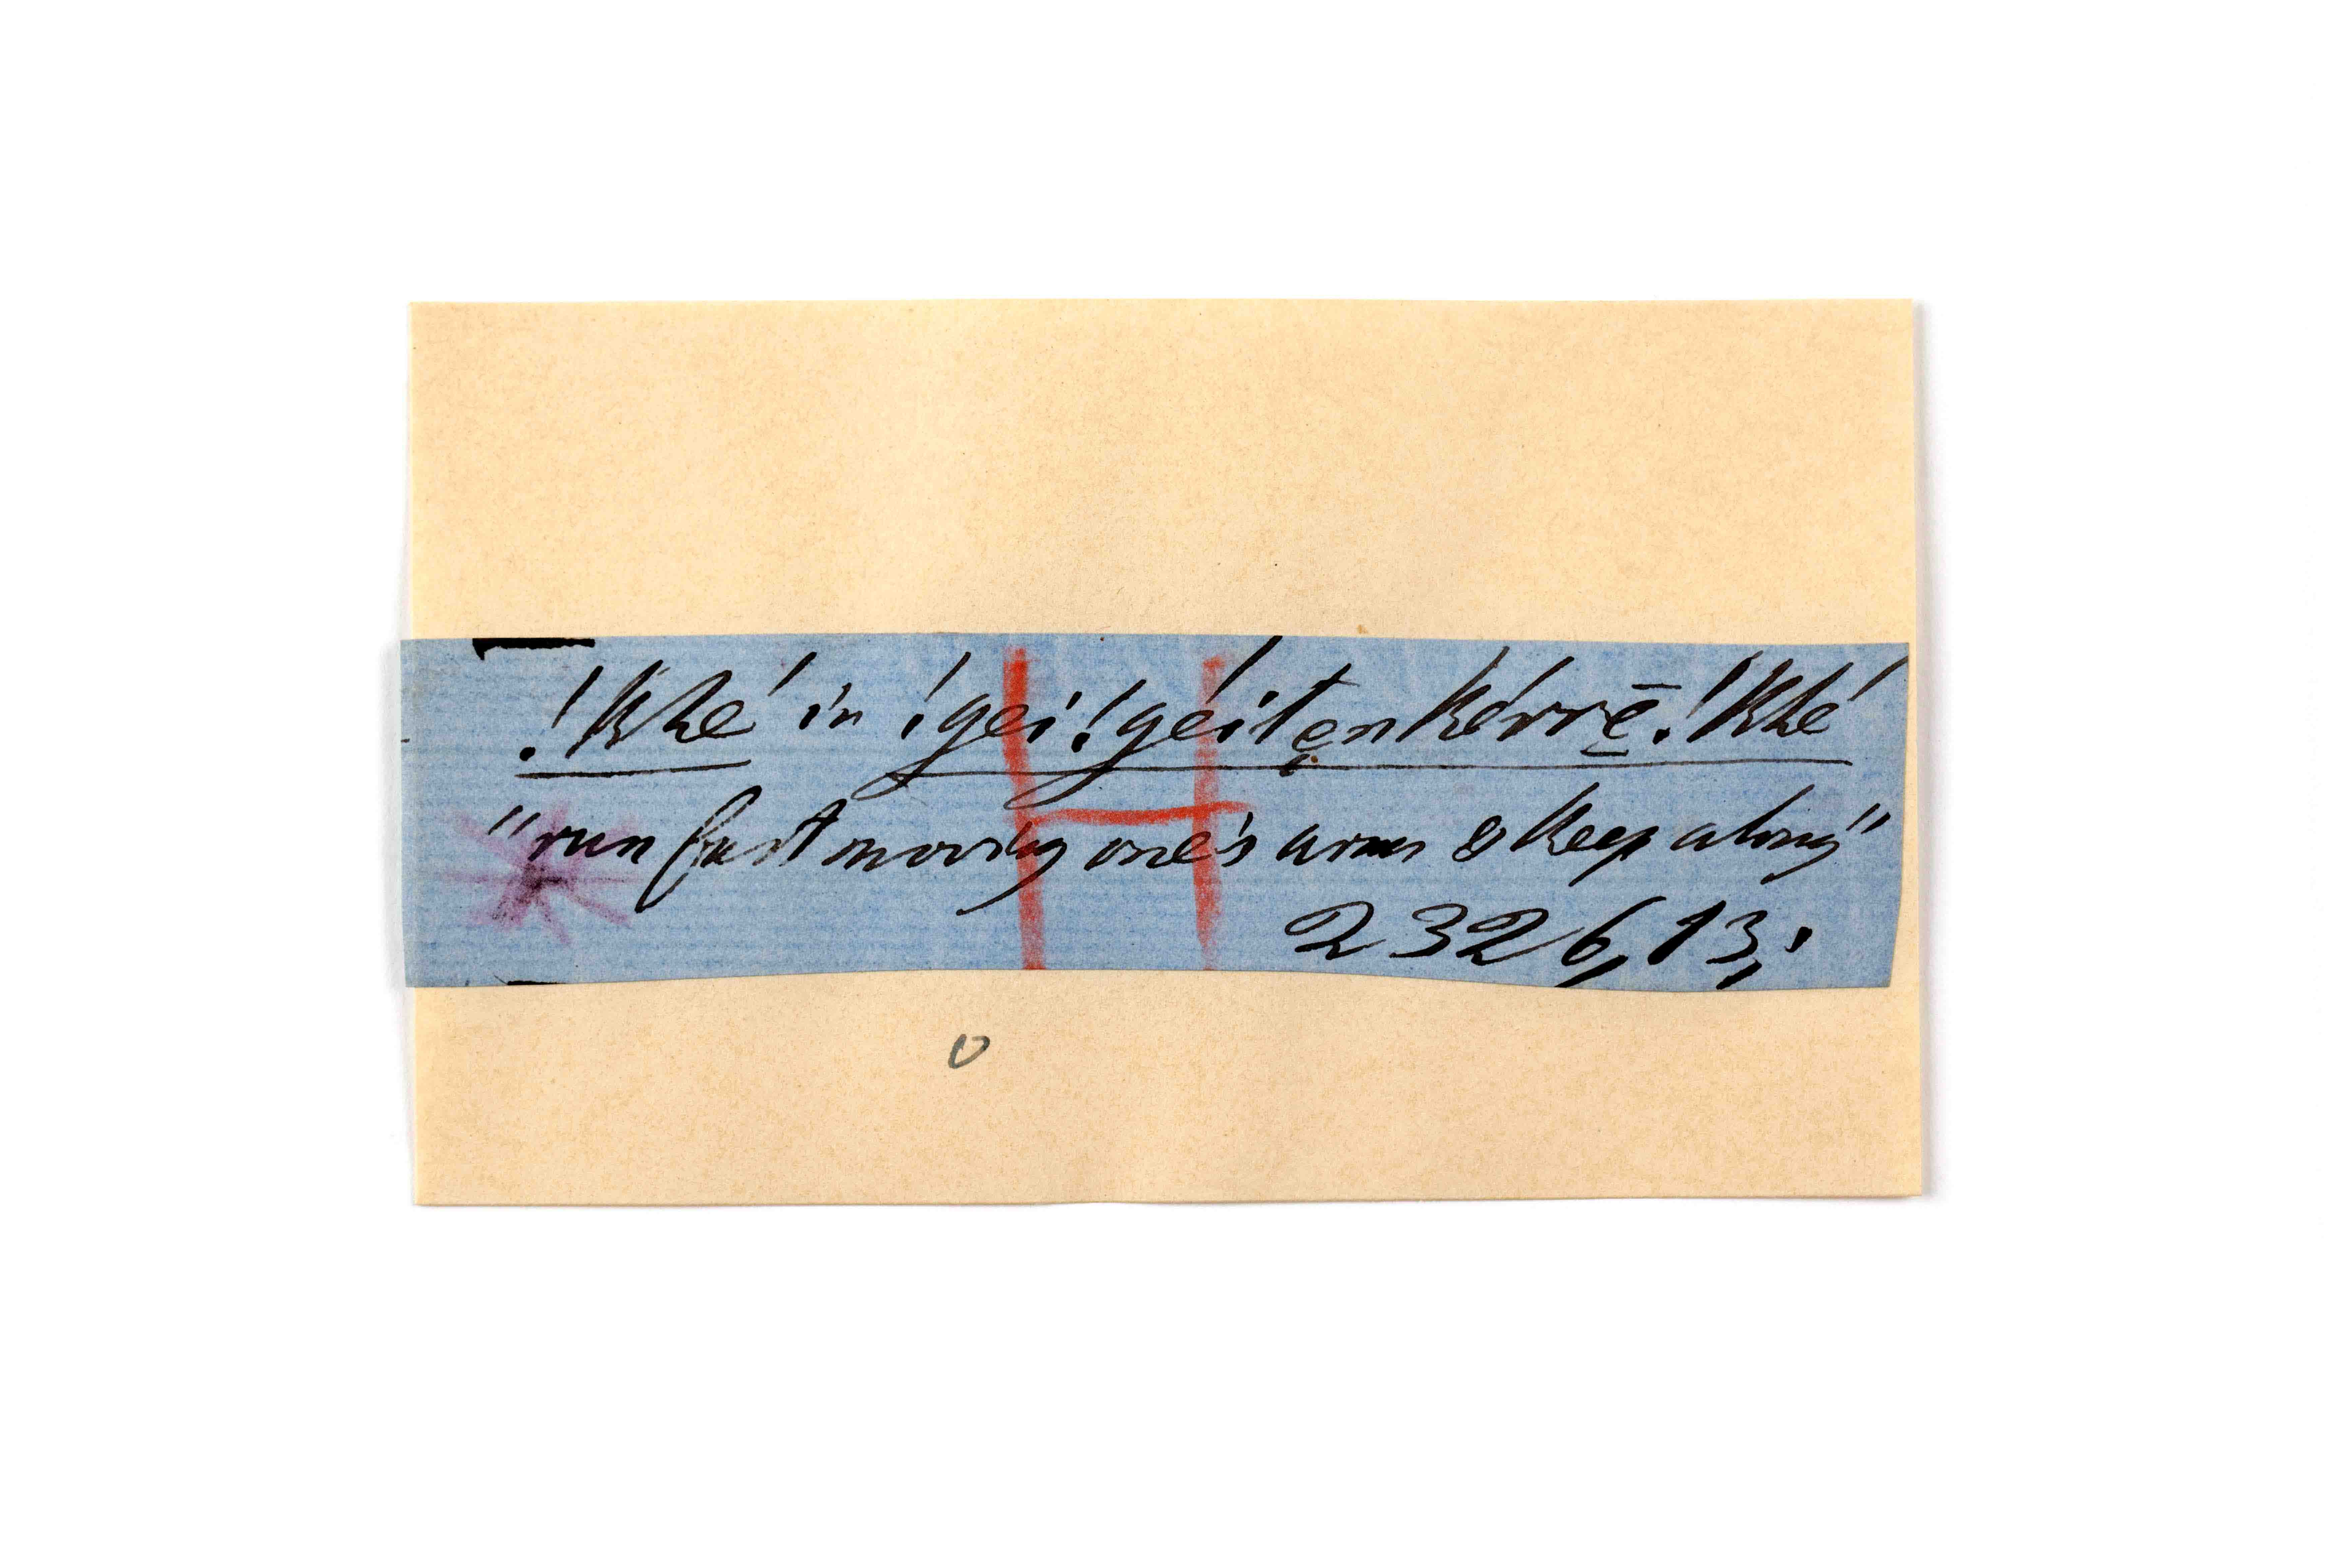 !khé in !gei!géitẹnkérrẹ̄!khé
"run fast moving one's arms & keep along"
2326,13,'
H